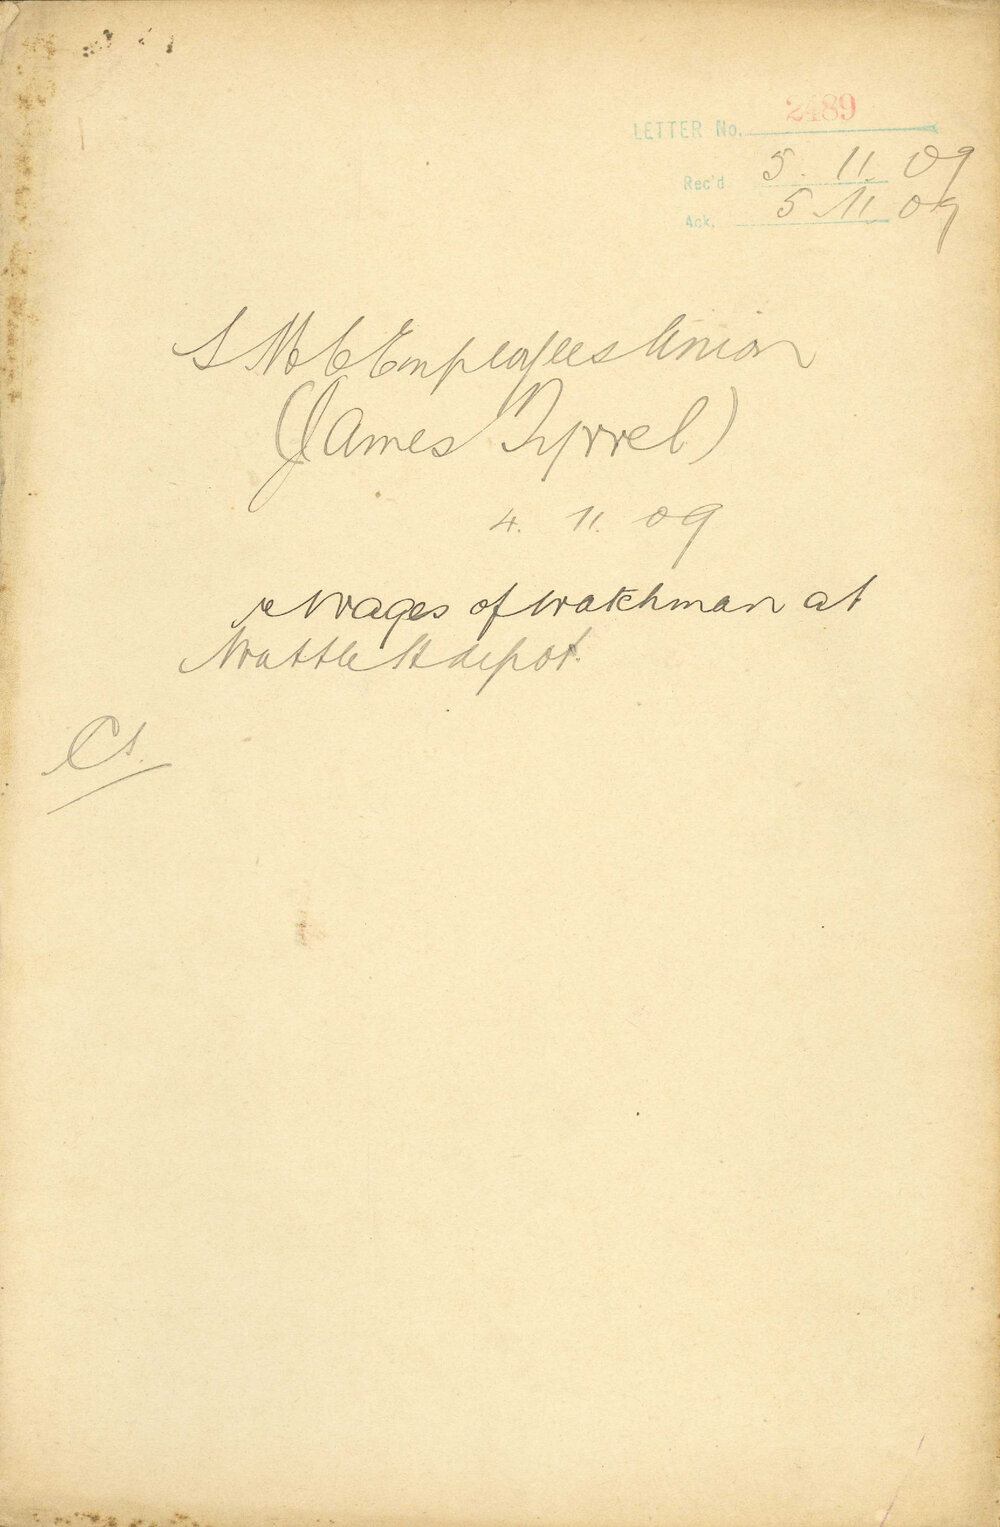 LETTER No. 2489
Rec'd 5. 11. 09
Ack. 5. 11. 09
S M C Employees Union
(James Tyrrel)
4. 11. 09
re Wages of watchman at
Wattle St depot.